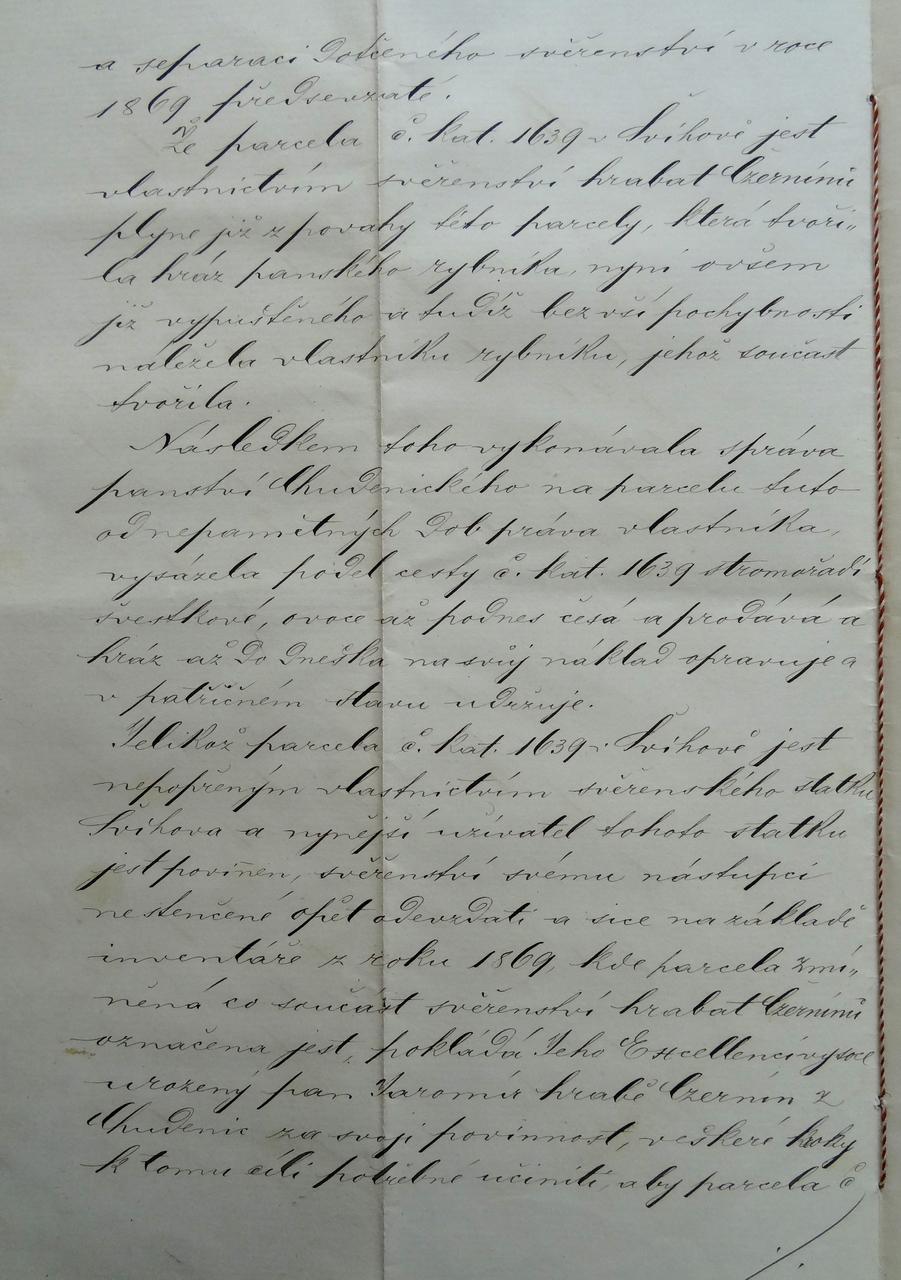 a separaci dotčeného svěřenství v roce
1869 předsevzaté.
Že parcela č. kat. 1639 v Švihově jest
vlastnictvím svěřenství hrabat Czernínů
plyne již z povahy této parcely, která tvoři„
la hráz panského rybníka, nyní ovšem
již vypuštěného a tudíž bez vší pochybnosti
náležela vlastníku rybníku, jehož součást
tvořila.
Následkem toho vykonávala správa
panství Chudenického na parcelu tuto
od nepamětných dob práva vlastníka,
vysázela podel cesty č. kat. 1639 stromořadí
švestkové, ovoce až podnes česá a prodává a
hráz až do dneška na svůj náklad opravuje a
v patřičném stavu udržuje.
Jelikož parcela č. kat. 1639 v Švihově jest
nepopřeným vlastnictvím svěřenského statku
Švihova a nynější uživatel tohoto statku
jest povinen, svěřenství svému nástupci
nestenčené opět odevzdati a sice na základě
inventáře z roku 1869, kde parcela zmí„
něná co součást svěřenství hrabat Czernínů
označena jest, pokládá Jeho Excellencí vysoce
urozený pan Jaromír hrabě Czernín z
Chudenic za svoji povinnost, veškeré kroky
k tomu cíli potřebné učiniti, aby parcela č